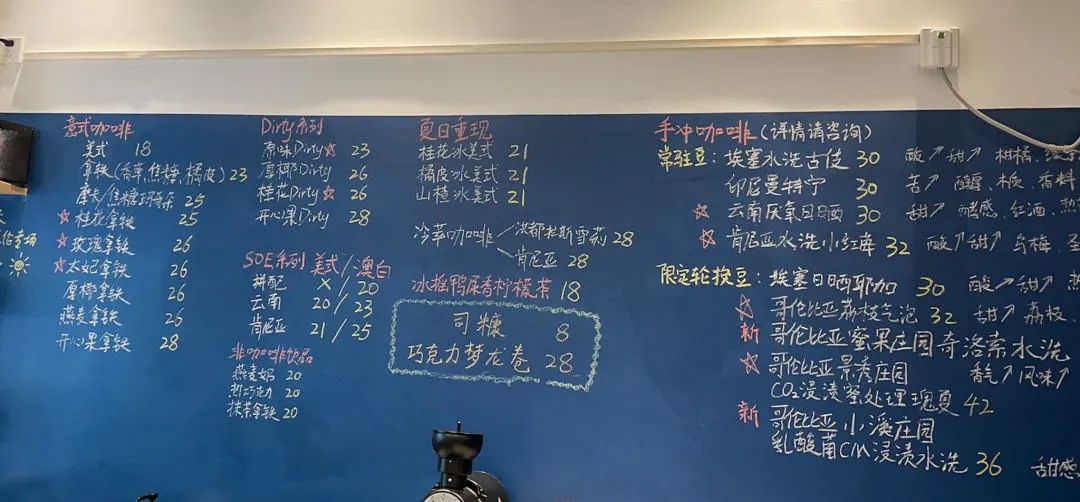 意式咖啡
美式 18
拿铁(香草、焦糖、橘皮) 23
摩卡/焦糖玛奇朵 25
☆桂花拿铁 25
☆玫瑰拿铁 26
☆太妃拿铁 26
厚椰拿铁 26
燕麦拿铁 26
开心果拿铁 28
Dirty系列
原味Dirty☆ 23
厚椰Dirty 26
桂花Dirty☆ 26
开心果Dirty 28
SOE系列 美式/澳白
拼配 X/20
云南 20/23
肯尼亚 21/25
非咖啡饮品
燕麦奶 20
热巧克力 20
抹茶拿铁 20
夏日重现
桂花冰美式 21
橘皮冰美式 21
山楂冰美式 21
冷萃咖啡 洪都拉斯雪莉 28
肯尼亚 28
冰桂鸭屎香柠檬茶 18
司糠 8
巧克力梦龙卷 28
手冲咖啡(详情请咨询)
常驻豆:埃塞水洗古佳 30 酸↗甜↗柑橘、
印尼曼特宁 30 苦↗醇厚、木质、香料
☆云南厌氧日晒 30 甜↗酵感、红酒、热
☆肯尼亚水洗小红莓 32 酸↗甜↗乌梅、圣
限定轮换豆:埃塞日晒耶加 30 酸↗甜↗热
☆哥伦比亚荔枝气泡 32 甜↗荔枝、
新 哥伦比亚蜜果庄园奇洛索水洗
☆哥伦比亚景秀庄园 香气↗风味↗
CO2浸渍蜜处理瑰夏 42
新 哥伦比亚小溪庄园
乳酸菌CM浸渍水洗 36 甜感